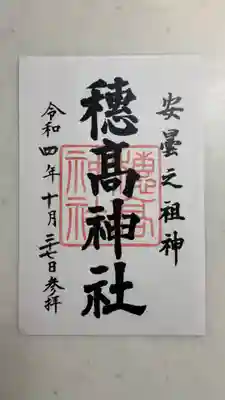 安曇之祖神
穂髙神社
令和四年十月二十七日参拝